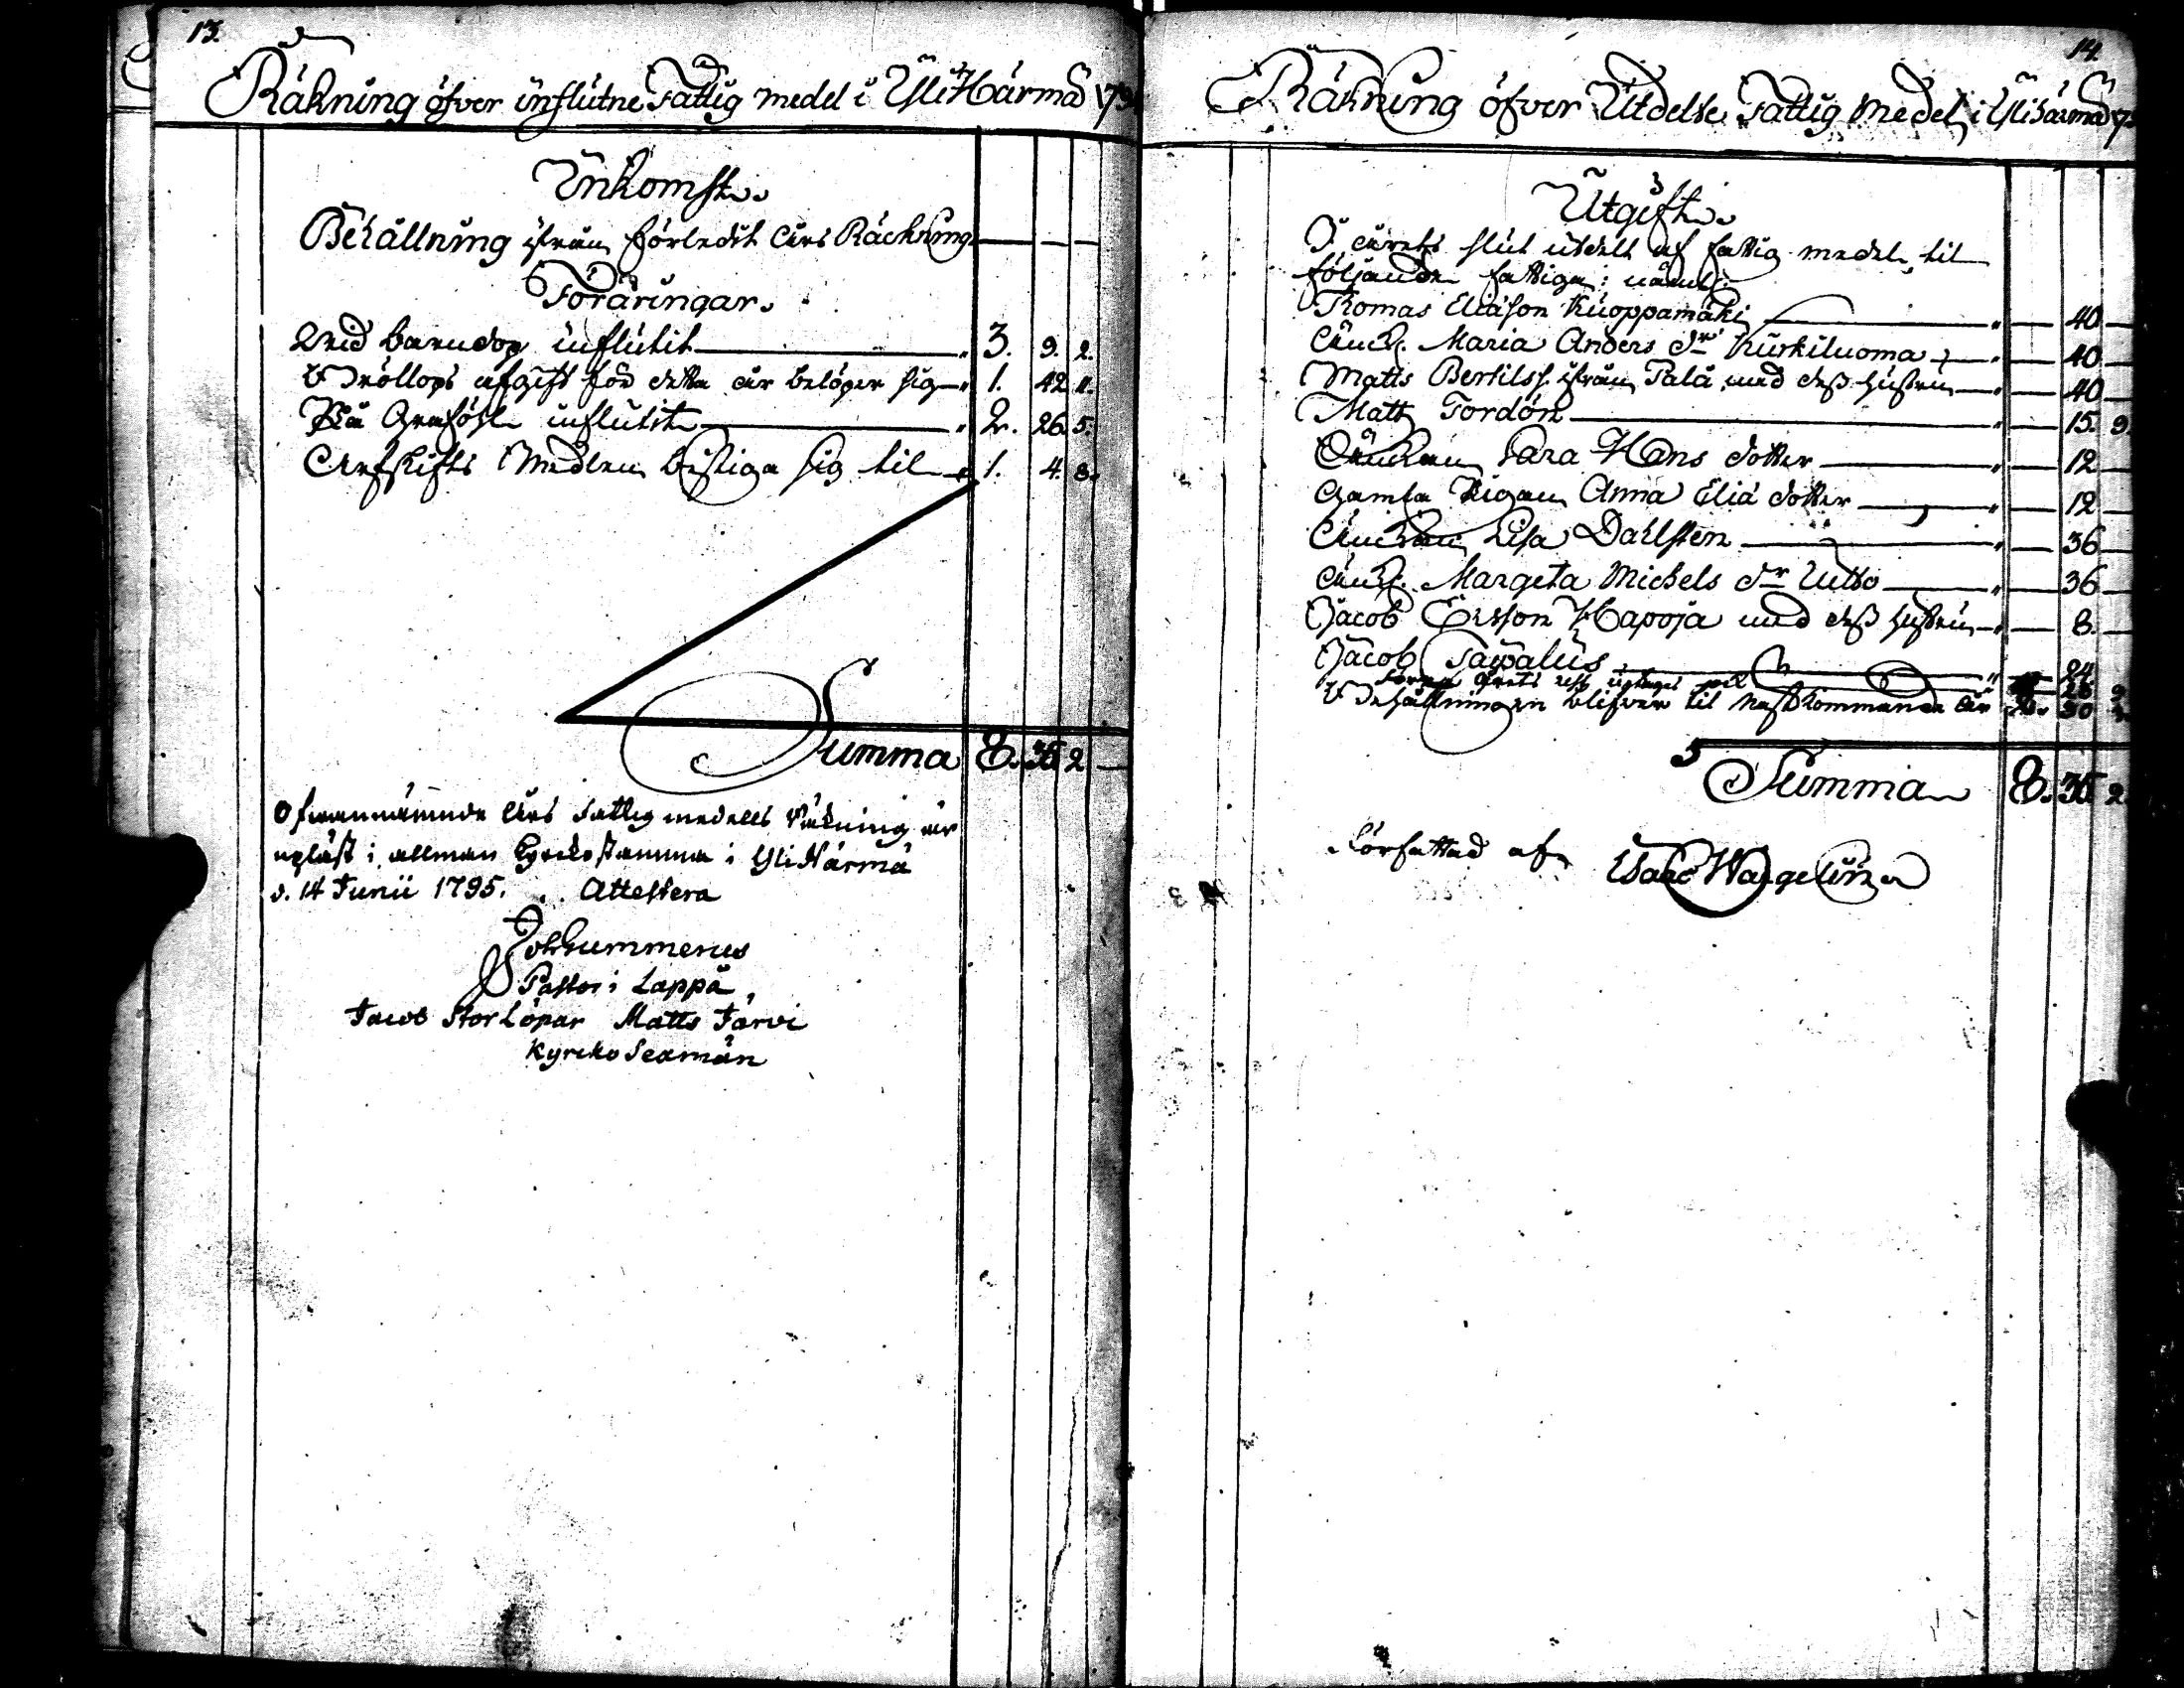 13.
Räkning öfver influtne Fattig medel i YliHärmä 179
Inkomst.
Behållning ifrån förledit Års Räckning — — —
Föräringar.
Wid barndop influtit — " 3. 9. 2.
Bröllops afgift för detta år belöper sig — " 1. 42 11.
På Graföhl influtit — " 2. 26. 5.
Arfskifts Medlen bestiga sig til — " 1. 4. 8.
Summa 8. 35 2 —
Ofwannämnde Års Fattig medels Räkning är
upläst i allmän Kyrckostämma i YliHärmä
d. 14 Junii 1795. Attestera
Joh Gummerus
Pastor i Lappå,
Jacob Storlöpar Matts Järvi
Kyrcko Sexmän
14.
Räkning öfver Utdelte Fattig Medel i Ylihärmä 179
Utgift.
I årets slut utdelt af fattig medel, til
följande fattiga: nämel:
Thomas Eliäson Kuoppamäki — " — 40 —
Änck. Maria Anders dr Kurkiluoma — " — 40 —
Matts Bertilss. ifrån Pala, med dess hustru — " — 40 —
Matts Tordön — " — 15. 9.
Änckan Sara Hans dotter — " — 12 —
Gamla Pigan Anna Eliä dotter — " — 12 —
Änckan Lisa Dahlsten — " — 36 —
Änck. Margeta Michels dr Uitto — " — 36 —
Jacob Ersson Hapoja med dess hustru — " — 8. —
Jacob Saipalus — " — 24
Förra Årets rest
Behållningen blifver til nästkommande År
Summa 8. 35. 2
Författad af Isaac Wargelin